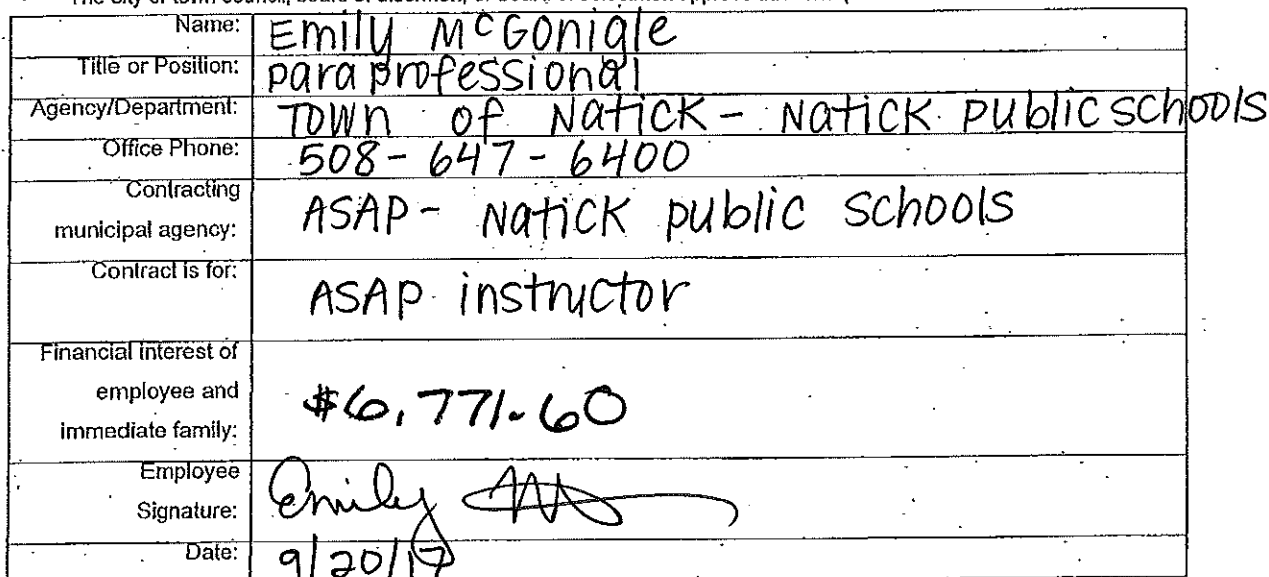 Name: Emily McGonigle
Title or Position: paraprofessional
Agency/Department: Town of Natick - Natick public schools
Office Phone: 508-647-6400
Contracting
municipal agency: ASAP - Natick public schools
Contract is for: ASAP instructor
Financial interest of
employee and
immediate family: $6,771.60
Employee
Signature: Emily
Date: 9/20/17